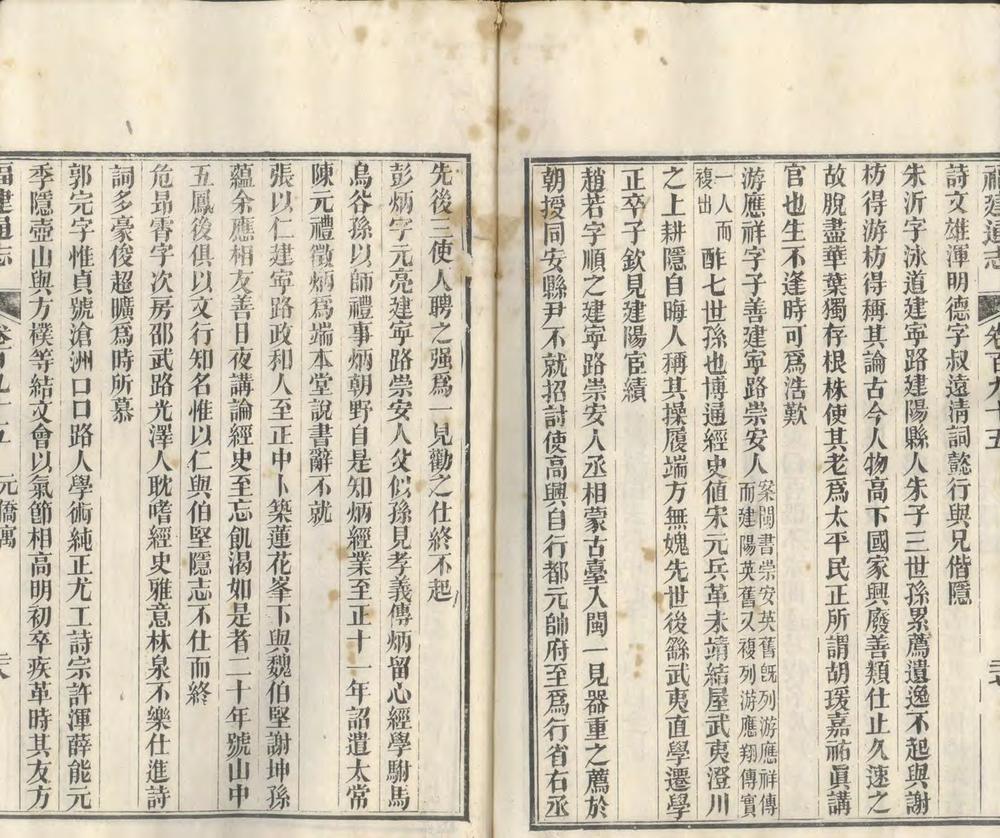 福建通志 卷百九十五
詩文雄渾明德字叔遠淸詞懿行與兄偕隱
朱沂字泳道建寧路建陽縣人朱子三世孫累薦遺逸不起與謝
枋得游枋得稱其論古今人物高下國家興廢善類仕止久速之
故脫盡華葉獨存根株使其老爲太平民正所謂胡瑗嘉祐眞講
官也生不逢時可爲浩歎
游應祥字子善建寧路崇安人案閩書崇安英舊旣列游應祥傳
而建陽英舊又複列游應翔傳實
一人而
複出
酢七世孫也博通經史値宋元兵革未靖結屋武夷澄川
之上耕隱自晦人稱其操履端方無媿先世後繇武夷直學遷學
正卒子欽見建陽宦績
趙若字順之建寧路崇安人丞相蒙古臺入閩一見器重之薦於
朝授同安縣尹不就招討使高興自行都元帥府至爲行省右丞
先後三使人聘之强爲一見勸之仕終不起
彭炳字元亮建寧路崇安人父似孫見孝義傳炳留心經學駙馬
烏谷孫以師禮事炳朝野自是知炳經業至正十一年詔遣太常
陳元禮徵炳爲端本堂說書辭不就
張以仁建寧路政和人至正中卜築蓮花峯下與魏伯堅謝坤孫
蘊余應相友善日夜講論經史至忘飢渴如是者二十年號山中
五鳳後俱以文行知名惟以仁與伯堅隱志不仕而終
危昂霄字次房邵武路光澤人耽嗜經史雅意林泉不樂仕進詩
詞多豪俊超曠爲時所慕
郭完字惟貞號滄洲口口路人學術純正尤工詩宗許渾薛能元
季隱壺山與方樸等結文會以氣節相高明初卒疾革時其友方
福建通志 卷百九十五 元僑寓